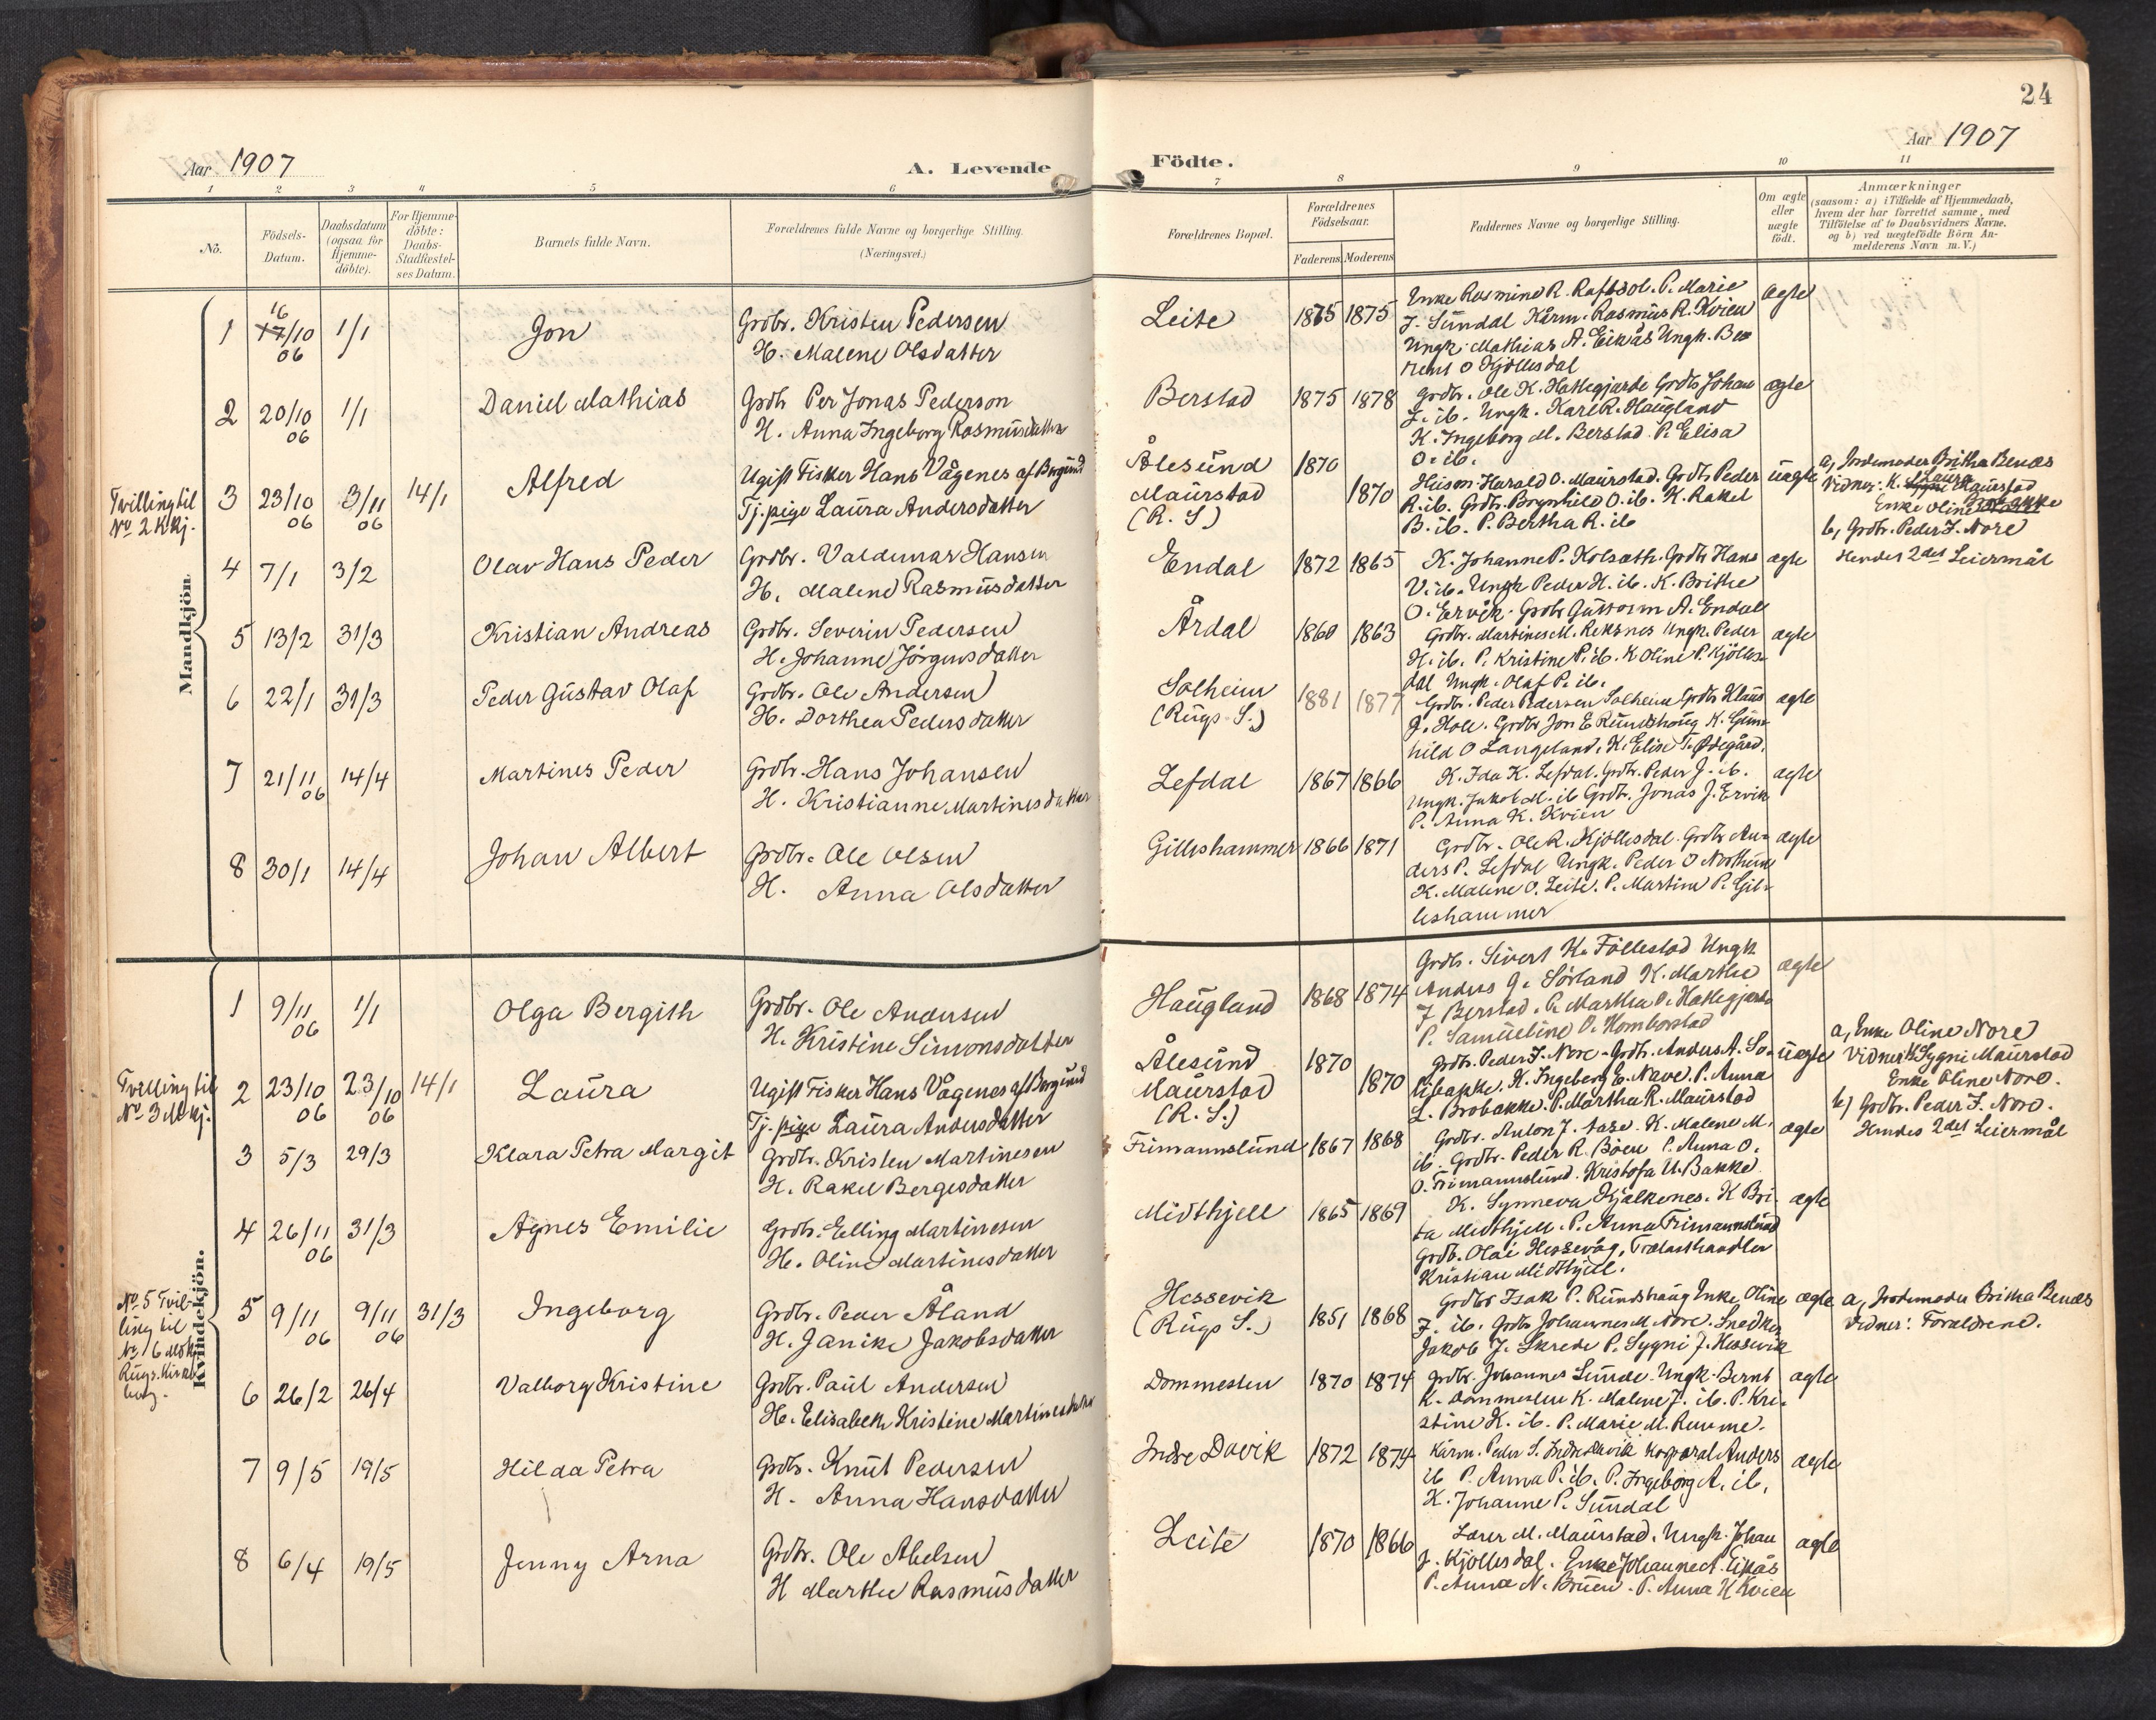 24
Aar 1907
A. Levende
Födte.
Aar 1907
1 2 3 4 5 6 7 8 9 10 11
No.
Födsels-Datum.
Daabsdatum (ogsaa for Hjemme-döbte).
For Hjemme-döbte: Daabs-Stadfæstel-ses Datum.
Barnets fulde Navn.
Forældrenes fulde Navne og borgerlige Stilling.
(Næringsvei.)
Forældrenes Bopæl.
Forældrenes Födselsaar.
Faderens. Moderens.
Faddernes Navne og borgerlige Stilling.
Om ægte eller uægte födt.
Anmærkninger
(saasom: a) i Tilfælde af Hjemmedaab,
hvem der har forrettet samme, med
Tilföielse af to Daabsvidners Navne.
og b) ved uægtefödte Börn An-
melderens Navn m. V.)
Mandkjön.
1 16/10 06 1/1 Jon
Grdbr. Kristen Pedersen
H. Malene Olsdatter
Leite 1865 1875
Enke Rasmine R. Raftsol. P. Marie
J. Sündal Kårm. Rasmüs R. Kvien
Ungk. Mathias A. Eikås Ungk. Be-
rent O Kjöllesdal
ægte
2 20/10 06 1/1 Daniel Mathias
Grdbr Per Jonas Pederson
H. Anna Ingeborg Rasmüsdatter
Berstad 1875 1878
Grdbr. Ole K. Hattegjærde Grdbr Johan
J. ib. Ungk. Karl R. Haügland
K. Ingeborg M. Berstad P. Elisa
O. ib.
ægte
Tvilling til
No 2 Kkj.
3 23/10 06 3/11 06 14/1 Alfred
Ugift Fisker Hans Vågenes af Borgünd
Tj. pige Laüra Andersdatter
Ålesünd 1870
Maürstad 1870
(R. S.)
Hüsm. Harald O. Maürstad. Grdbr Peder
R. ib. Grdbr. Brynhild O. ib. K. Rakel
B. ib. P. Bertha R. ib
üægte
a, Jordmoder Britha Benæs
Vidner: K. Laüra Maürstad
Enke Oline Brobakke
b, Grdbr. Peder J. Nore
Hendes 2det Leiermål
4 7/1 3/2 Olav Hans Peder
Grdbr. Valdemar Hansen
H. Malene Rasmüsdatter
Endal 1872 1865
K. Johanne P. Kolsæth. Grdbr Hans
V. ib. Ungk Peder H. ib. K. Brithe
O. Ervik. Grdbr Güttorm A. Endal
ægte
5 13/2 31/3 Kristian Andreas
Grdbr. Severin Pedersen
H. Johanne Jörgensdatter
Årdal 1860 1863
Grdbr. Martines M. Reksnes Ungk. Peder
H. ib. P. Kristine P. ib. K Oline P. Kjölles-
dal Ungk. Olaf P. ib.
ægte
6 22/1 31/3 Peder Güstav Olaf
Grdbr. Ole Andersen
H. Dorthea Pedersdatter
Solheim
(Rügs. S.)
1881 1877
Grdbr. Peder Pedersen Solheim Grdbr Klaüs
J. Hole. Grdbr Jon E Ründshaüg K. Gün-
hild O Langeland. K. Elise T. Ødegård.
ægte
7 21/11 06 14/4 Martines Peder
Grdbr. Hans Johansen
H. Kristianne Martinesdatter
Lefdal 1867 1866
K. Ida K. Lefdal. Grdbr. Peder J. ib.
Ungk. Jakob M. ib Grdbr. Jonas J. Ervik
P. Anna K. Kvien
ægte
8 30/1 14/4 Johan Albert
Grdbr. Ole Olsen
H. Anna Olsdatter
Gilleshammer 1866 1871
Grdbr. Ole R. Kjöllesdal. Grdbr An-
ders P. Lefdal Ungk. Peder O
K. Malene O. Leite. P. Martine P. Gil-
leshammer
ægte
Kvindekjön.
1 9/11 06 1/1 Olga Bergith
Grdbr. Ole Andersen
H. Kristine Simonsdatter
Haügland 1868 1874
Grdbr. Sivert K. Föllestad Ungk
Anders G. Sörland K. Marthe
J Berstad. P. Martha O. Hattegjærde
P. Samüeline O. Homborstad
ægte
Tvilling til
No 3 Mkj.
2 23/10 06 23/10 06 14/1 Laüra
Ugift Fisker Hans Vågenes af Borgünd
Tj. pige Laüra Andersdatter
Ålesünd 1870
Maürstad 1870
(R. S.)
Grdbr. Peder J. Nore. Grdbr. Anders A. So-
libakke. K. Ingeborg E. Nave. P. Anna
L. Brobakke. P. Martha R. Maürstad
üægte
a, Enke Oline Nore
Vidner K Sygni Maürstad
Enke Oline Nore.
b) Grdbr. Peder J. Nore.
Hendes 2det Leiermål
3 5/3 29/3 Klara Petra Margit
Grdbr. Kristen Martinesen
H. Rakel Bergesdatter
Frimannslünd 1867 1868
Grdbr. Anton J. Aase. K. Malene M.
ib. Grdbr. Peder R. Böen P. Anna O.
O. Frimannslünd. Kristofa U. Bakke
ægte
4 26/11 06 31/3 Agnes Emilie
Grdbr. Elling Martinesen
H. Oline Martinesdatter
Midthjell 1865 1869
K. Synneva Kjølkenes. K Bri-
ta Midthjell. P. Anna Frimannslünd
Grdbr. Olai Hessevåg, Trælasthandler
Kristian Midthjell.
ægte
No 5 Tvil-
ling til
No 6 Mkj
Rügs. Kirke
bog.
5 9/11 06 9/11 06 31/3 Ingeborg
Grdbr. Peder Åland
H. Janike Jakobsdatter
Hessevik
(Rügs S.)
1851 1868
Grdbr Isak P. Ründshaüg Enke Oline
J. ib. Grdbr Johannes M. Nore. Snedker
Jakob J. Skrede P. Sygni J. Hessevik
ægte
a, Jordemoder Britha Benæs
Vidner: Forældrene.
6 26/2 26/4 Valborg Kristine
Grdbr. Paül Andersen
H. Elisabeth Kristine Martinesdatter
Dommesten 1870 1874
Grdbr. Johannes Lünde. Ungk. Bernt
K. Dommesten K. Malene J. ib. P. Kri-
stine K. ib. P. Marie M.
ægte
7 9/5 19/5 Hilda Petra
Grdbr. Knüt Pedersen
H. Anna Hansdatter
Indre Davik 1872 1874
Kårm. Peder S. Indredavik Korporal Anders
ib P. Anna P. ib. P. Ingeborg A. ib.
K. Johanne P. Sündal
ægte
8 6/4 19/5 Jenny Arna
Grdbr. Ole Abelsen
H Marthe Rasmüsdatter
Leite 1870 1866
Lærer M. Maürstad. Ungk. Johan
J. Kjöllesdal. Enke Johanne A. Eikås
P. Anna N. Brüen. P. Anna K Kvien
ægte